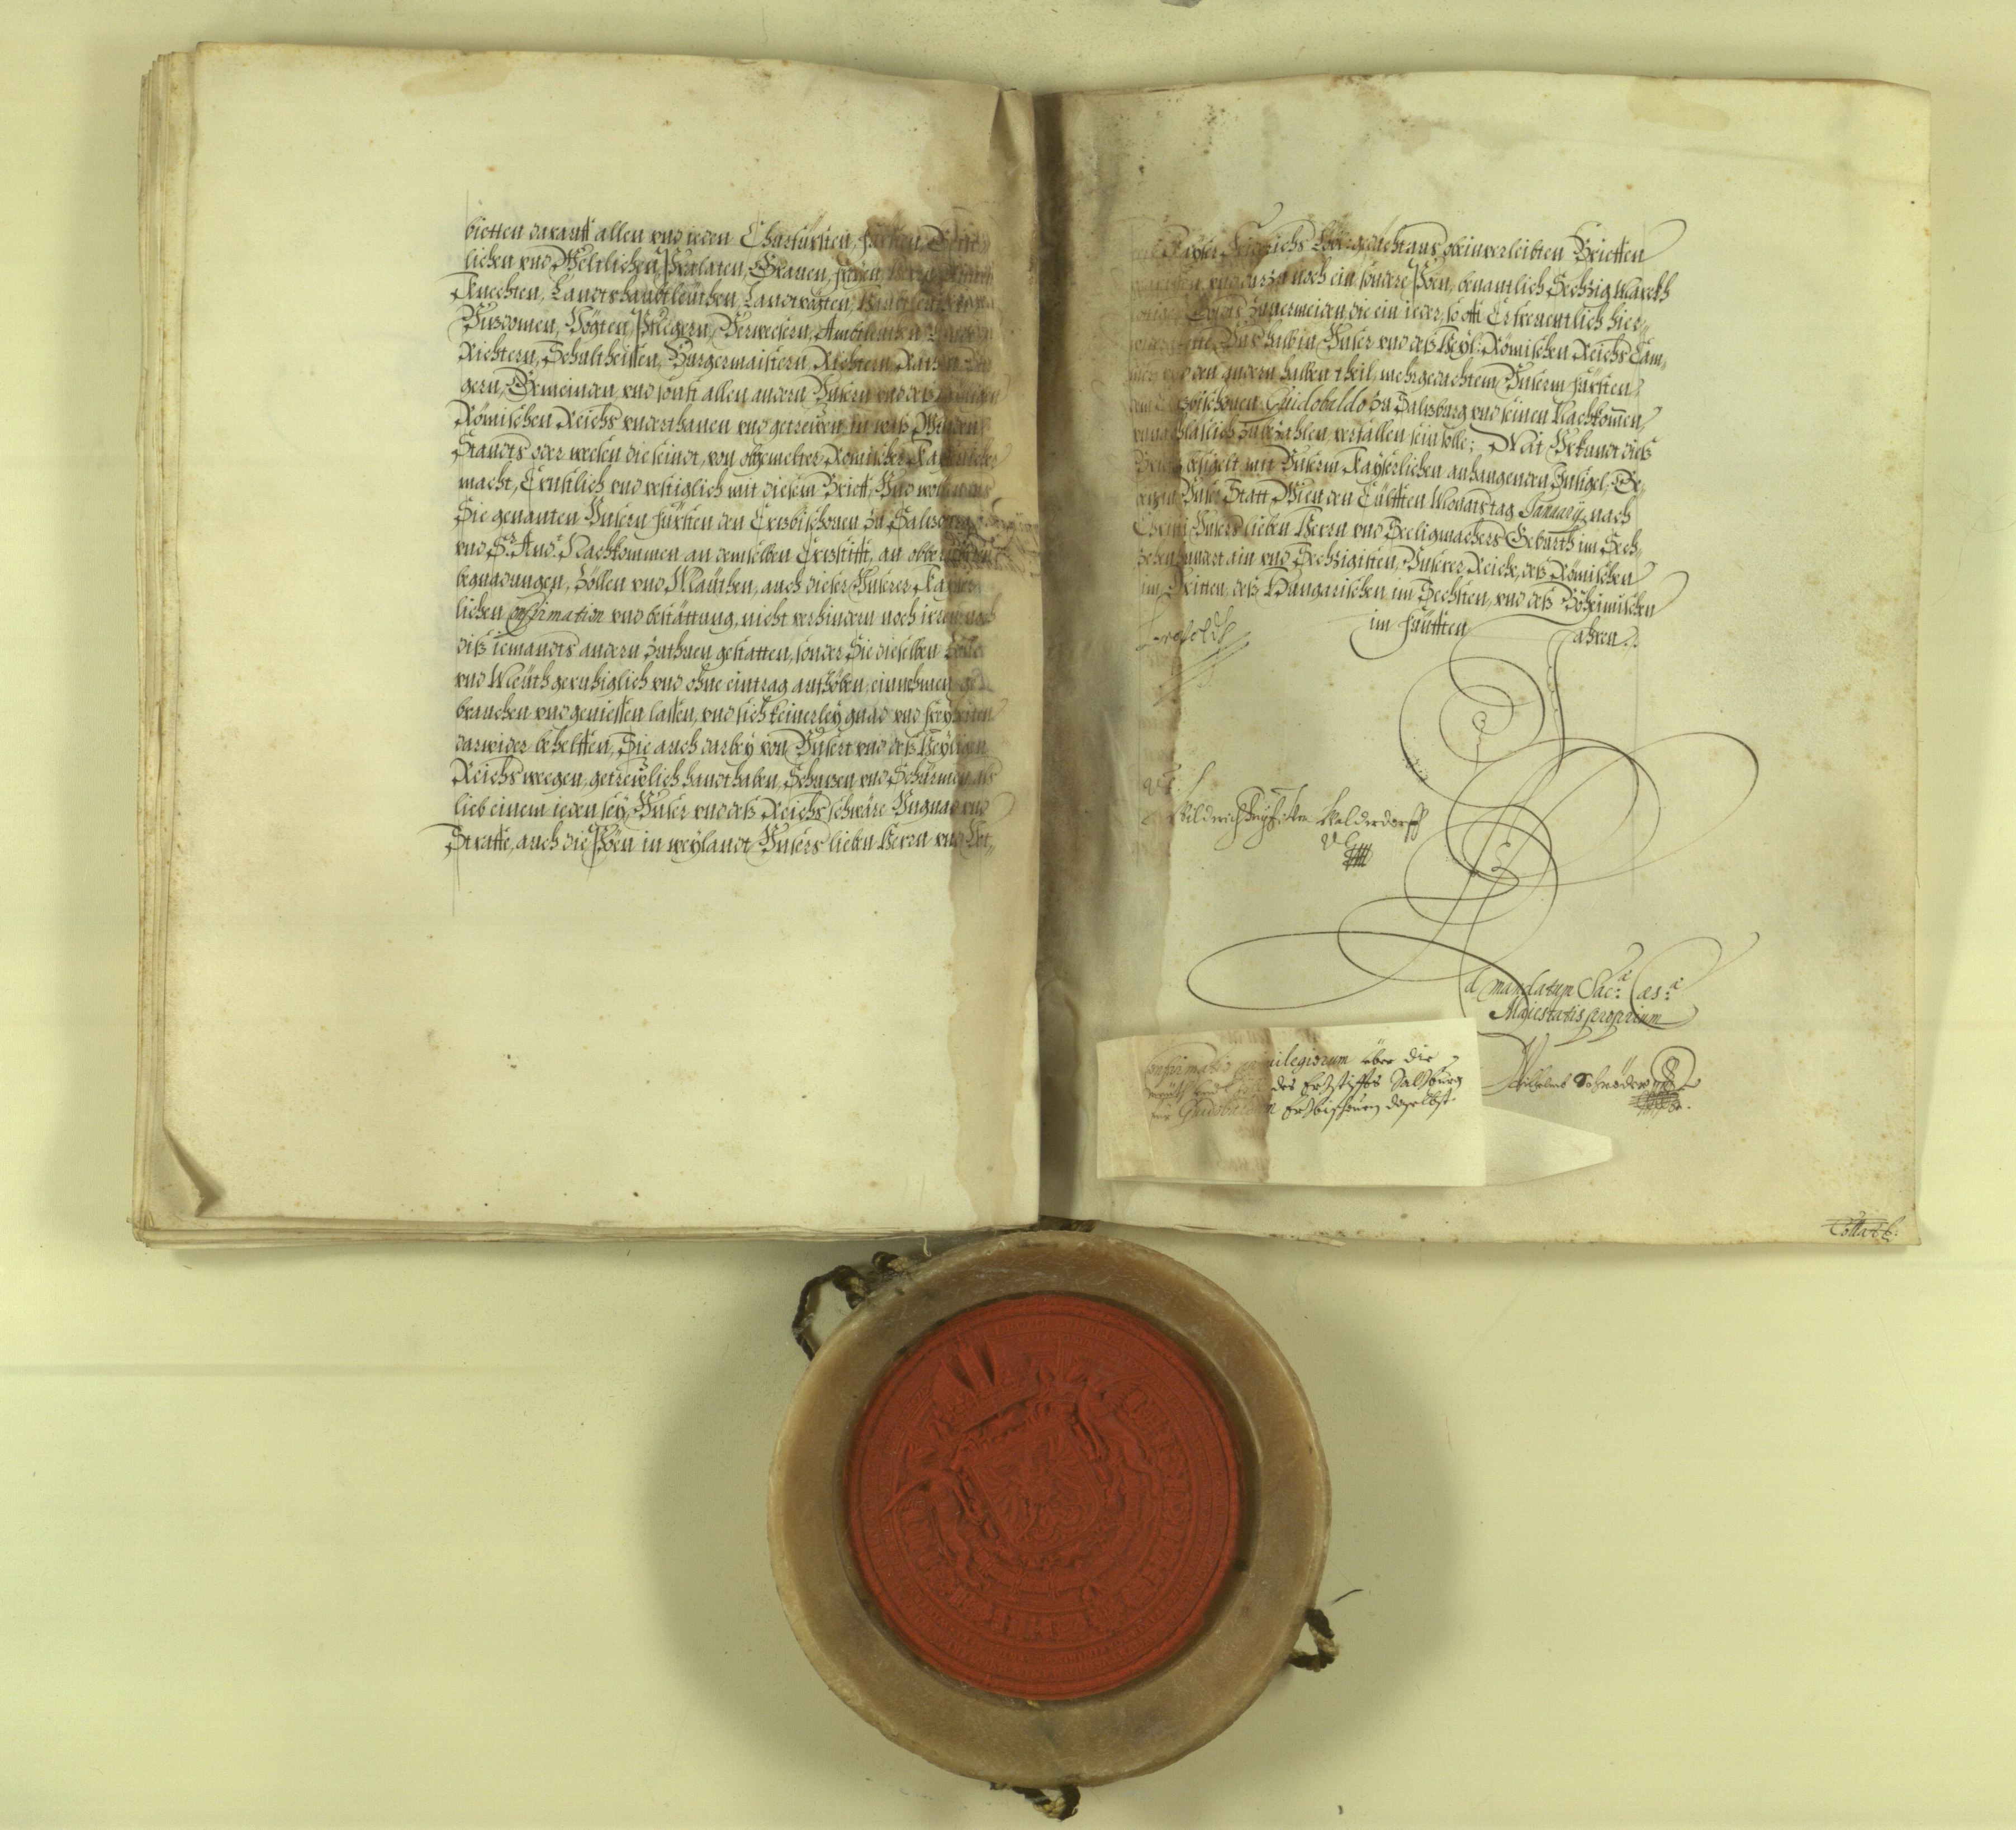 bietten darauff allen vnd ieden Churfürsten, Fürsten, Geist-
lichen vnd Weltlichen, Prælaten, Grauen, Freyen, Herrn, Rittern
Knechten, Landtshaubtleüthen, Landtvögten,
Vizdomen, Vögten, Pflegern, Verwesern, Ambtleüthen
Richtern, Schultheissen, Burgermaistern, Richtern, Räthen
gern, Gemeinden, vnd sonst allen andern Vnsern vnd deß Heyligen
Römischen Reichs vnderthanen vnd getrewen, in waß Würden
Standts oder weesen die seindt, von obgemelter Römischer Kayserlicher
macht, Ernstlich vnd vestiglich mit diesem Brieff, Vnd wollen
Sie genanten Vnsern Fürsten den Erzbischouen zu Salzburg
vnd Sr. And. Nachkommen an demselben Erzstifft, an obberührten
begnadungen, Zöllen vnd Mauthen, auch dieser Vnserer Kayser-
lichen Confirmation vnd bestättung, nicht verhindern noch irren, noch
diß iemandts andern zuthuen gestatten, sonder Sie dieselben Zölle
vnd Meüth geruhiglich vnd ohne eintrag auffhöben, einnehmen, ge-
brauchen vnd geniessen lassen, vnd sich keinerley gnad vnd freyheiten
darwider behelffen, Sie auch darbey von Vnsert vnd deß Heyligen
Reichs weegen, getrewlich handthaben, Schuzen vnd Schürmen, als
lieb einem ieden sey, Vnser vnd deß Reichs schwäre Vngnad vnd
Straffe, auch die Pöen in weylandt Vnsers lieben Herrn vnd Vet-
Kayser Fridrichs Löbl: gedechtnus obeinverleibten Brieffen
vnd darzu noch ein sondere Pöen, benantlich Sechzig Marckh
Goldts zuuermeiden, die ein ieder, so offt Er freuentlich hier-
Vnß halb in Vnser vnd deß Heyl: Römischen Reichs Cam-
vnd den andern halben theil, mehrgedachtem Vnserm Fürsten
Erzbischouen Guidobaldo zu Salzburg vnd seinen Nachkommen,
vnnachläslich zu bezahlen, verfallen sein solle; Mit Vrkundt diß
Brieffs besigelt mit Vnserm Kayserlichen anhangenden Insigel, Ge-
Vnser Statt Wien den Eülfften Monatstag January, nach
Christi Vnsers lieben Herrn vnd Seeligmachers Geburth im Sech-
zehenhundert ain vnd Sechzigisten, Vnserer Reiche, deß Römischen
im Dritten, deß Hungarischen im Sechsten, vnd deß Böheimischen
im Fünfften Jahren.
Leopoldt
Vt.
Wilderich Freyh: von Walderdorff
Ad mandatum Sac.æ Cæs.æ
Majestatis proprium
Wilhelmb Schröder
Confirmatio privilegiorum über die
Meüth vnd des Erzstiffts Salzburg
für Guidobaldum Erzbischouen daselbst.
Collat.